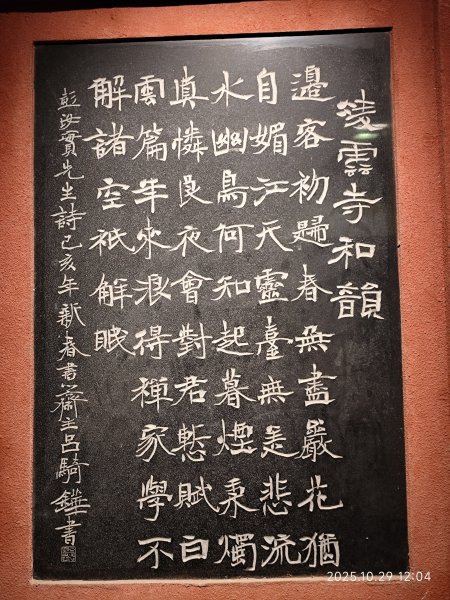 凌雲寺和韻
邊客初歸春無盡嚴花猶
自媚江天靈臺無是悲流
水幽鳥何知起暮煙秉燭
真憐良夜會對君慙賦白
雲篇年來浪得禪家學不
解諸空祇解眠
彭汝實先生詩己亥年新春書齋主呂騎鏵書
2025.10.29 12:04